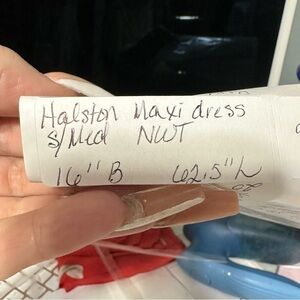 Halston Maxi dress
S/Med NWT
16" B 62.5" L